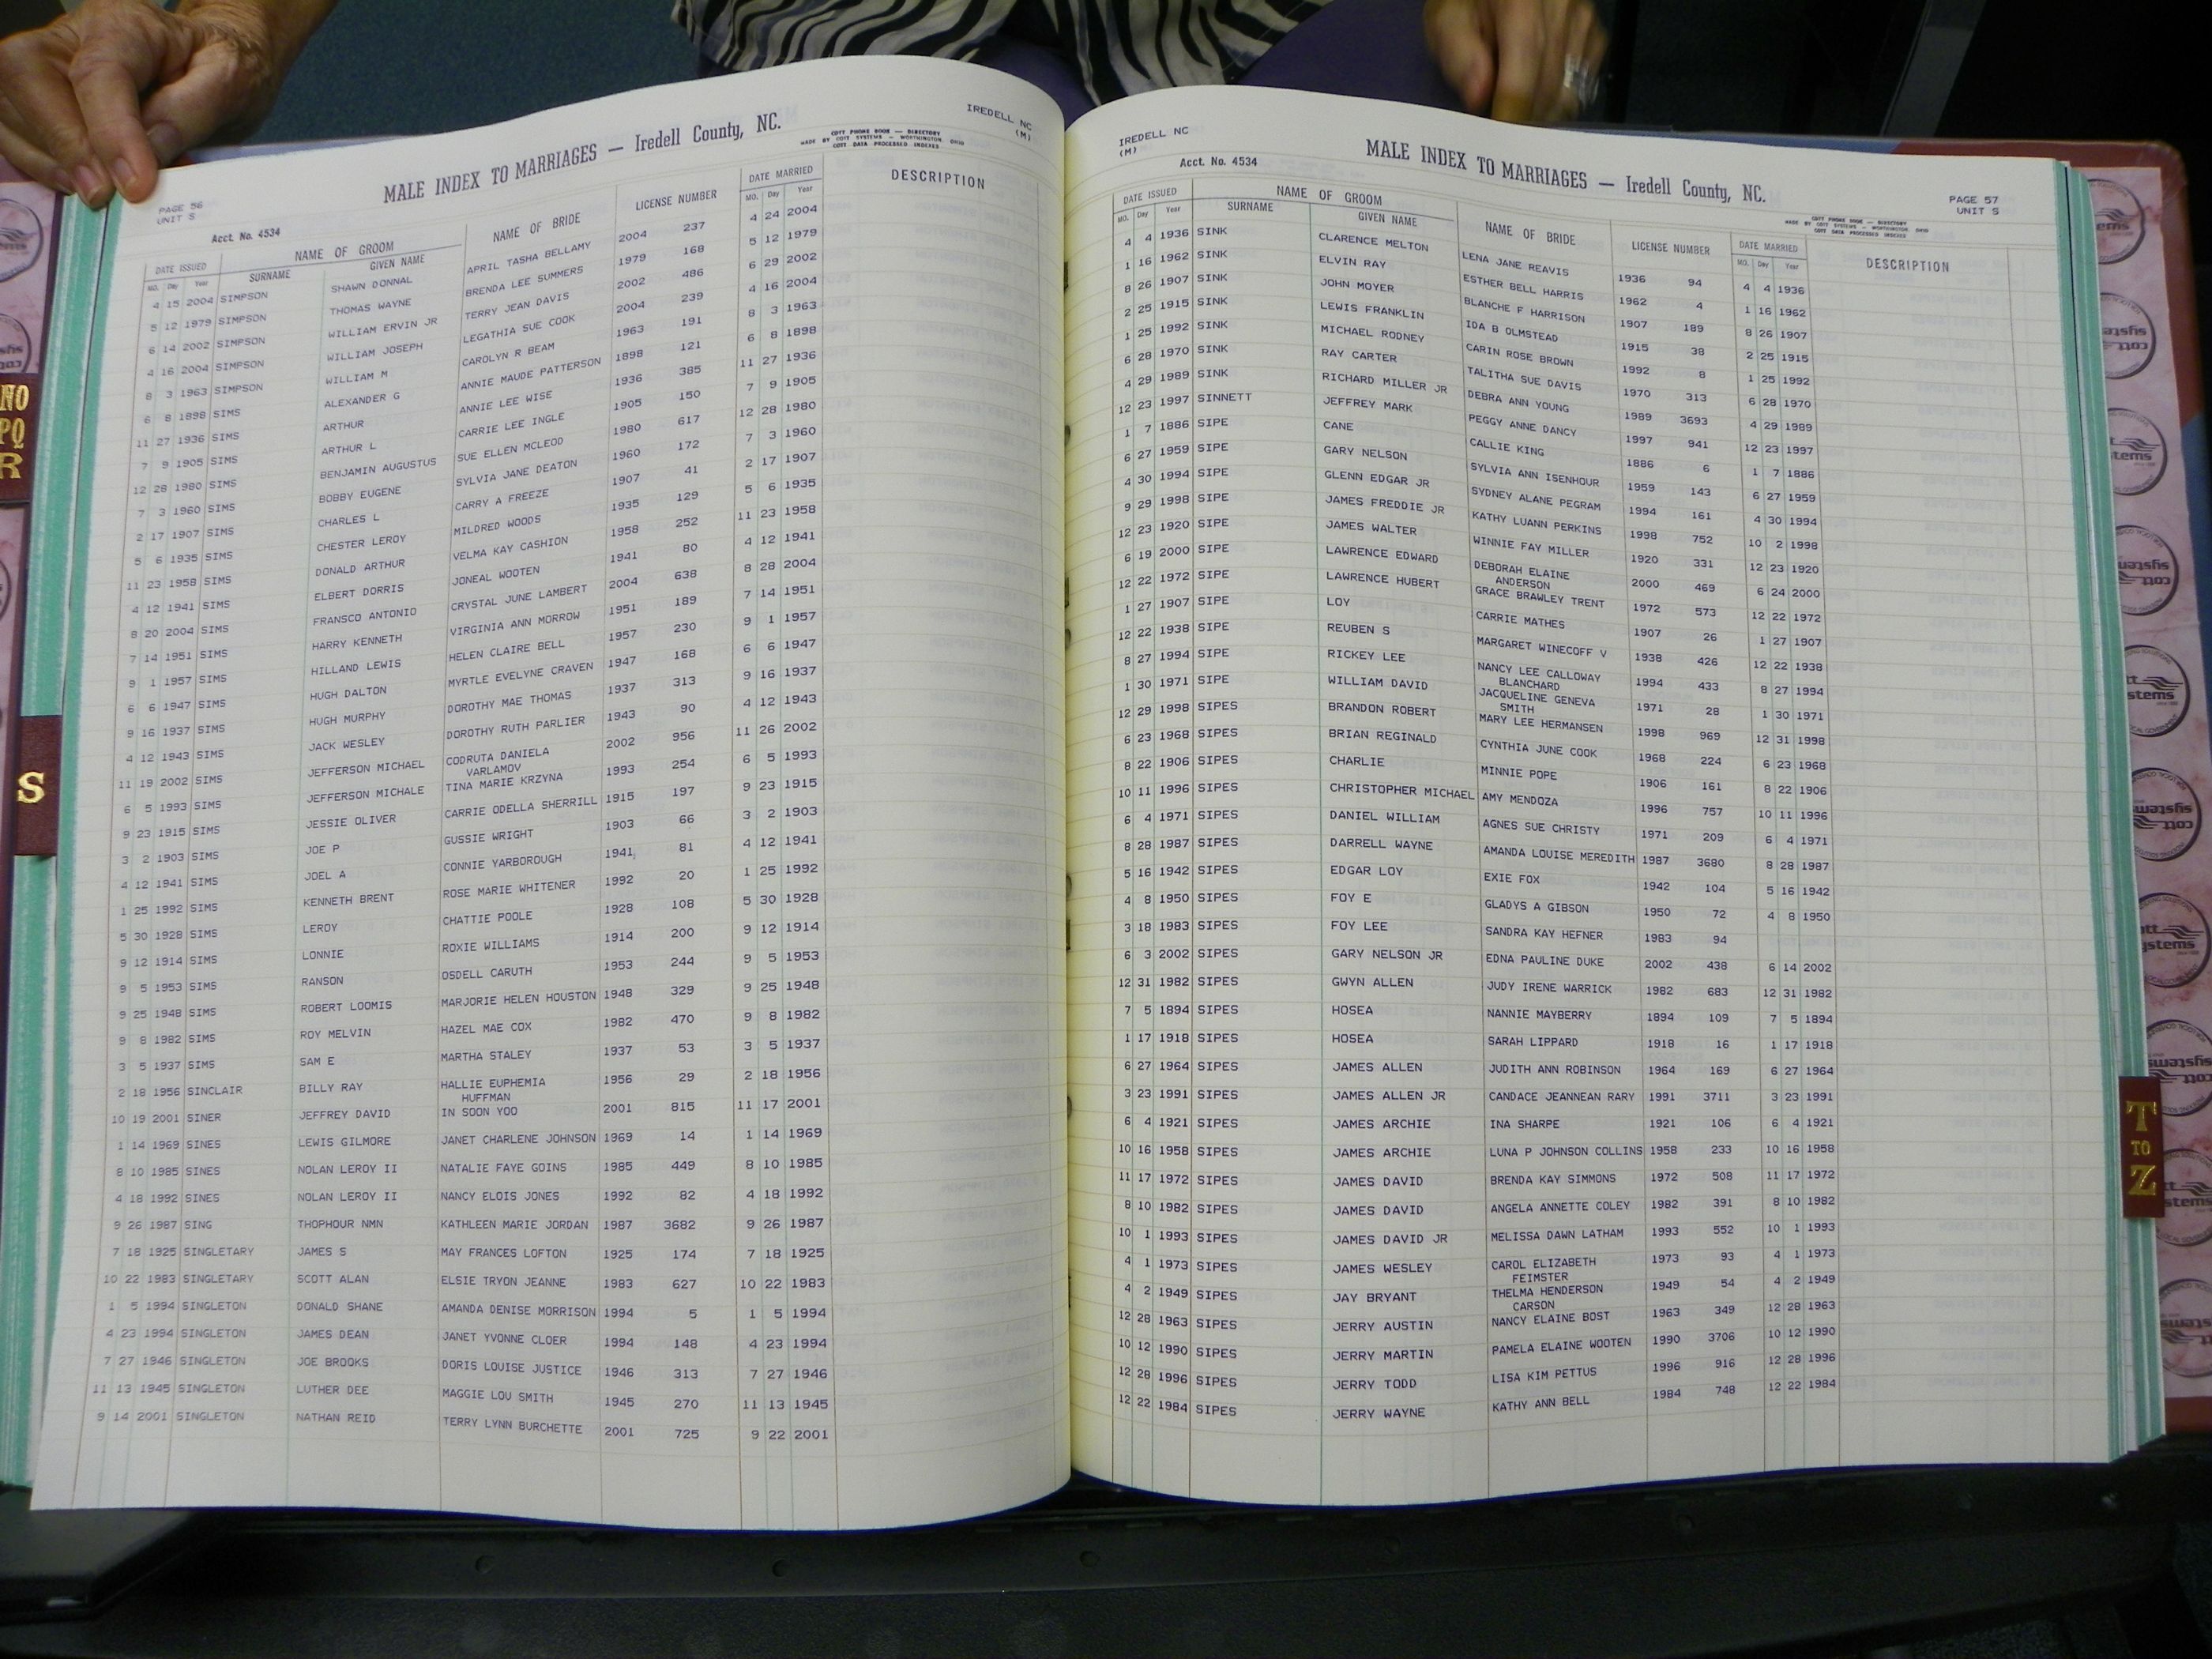 IREDELL NC
(M)
MALE INDEX TO MARRIAGES — Iredell County, NC.
COTT PHONE BOOK — DIRECTORY
MADE BY COTT SYSTEMS — WORTHINGTON, OHIO
COTT DATA PROCESSED INDEXES
PAGE 56
UNIT S
Acct. No. 4534
DATE ISSUED NAME OF GROOM NAME OF BRIDE LICENSE NUMBER DATE MARRIED DESCRIPTION
MO. Day Year SURNAME GIVEN NAME MO. Day Year
4 15 2004 SIMPSON SHAWN DONNAL APRIL TASHA BELLAMY 2004 237 4 24 2004
5 12 1979 SIMPSON THOMAS WAYNE BRENDA LEE SUMMERS 1979 168 5 12 1979
6 14 2002 SIMPSON WILLIAM ERVIN JR TERRY JEAN DAVIS 2002 486 6 29 2002
4 16 2004 SIMPSON WILLIAM JOSEPH LEGATHIA SUE COOK 2004 239 4 16 2004
8 3 1963 SIMPSON WILLIAM M CAROLYN R BEAM 1963 191 8 3 1963
6 8 1898 SIMS ALEXANDER G ANNIE MAUDE PATTERSON 1898 121 6 8 1898
11 27 1936 SIMS ARTHUR ANNIE LEE WISE 1936 385 11 27 1936
7 9 1905 SIMS ARTHUR L CARRIE LEE INGLE 1905 150 7 9 1905
12 28 1980 SIMS BENJAMIN AUGUSTUS SUE ELLEN MCLEOD 1980 617 12 28 1980
7 3 1960 SIMS BOBBY EUGENE SYLVIA JANE DEATON 1960 172 7 3 1960
2 17 1907 SIMS CHARLES L CARRY A FREEZE 1907 41 2 17 1907
5 6 1935 SIMS CHESTER LEROY MILDRED WOODS 1935 129 5 6 1935
11 23 1958 SIMS DONALD ARTHUR VELMA KAY CASHION 1958 252 11 23 1958
4 12 1941 SIMS ELBERT DORRIS JONEAL WOOTEN 1941 80 4 12 1941
8 20 2004 SIMS FRANSCO ANTONIO CRYSTAL JUNE LAMBERT 2004 638 8 28 2004
7 14 1951 SIMS HARRY KENNETH VIRGINIA ANN MORROW 1951 189 7 14 1951
9 1 1957 SIMS HILLAND LEWIS HELEN CLAIRE BELL 1957 230 9 1 1957
6 6 1947 SIMS HUGH DALTON MYRTLE EVELYNE CRAVEN 1947 168 6 6 1947
9 16 1937 SIMS HUGH MURPHY DOROTHY MAE THOMAS 1937 313 9 16 1937
4 12 1943 SIMS JACK WESLEY DOROTHY RUTH PARLIER 1943 90 4 12 1943
11 19 2002 SIMS JEFFERSON MICHAEL CODRUTA DANIELA 2002 956 11 26 2002
VARLAMOV
6 5 1993 SIMS JEFFERSON MICHALE TINA MARIE KRZYNA 1993 254 6 5 1993
9 23 1915 SIMS JESSIE OLIVER CARRIE ODELLA SHERRILL 1915 197 9 23 1915
3 2 1903 SIMS JOE P GUSSIE WRIGHT 1903 66 3 2 1903
4 12 1941 SIMS JOEL A CONNIE YARBOROUGH 1941 81 4 12 1941
1 25 1992 SIMS KENNETH BRENT ROSE MARIE WHITENER 1992 20 1 25 1992
5 30 1928 SIMS LEROY CHATTIE POOLE 1928 108 5 30 1928
9 12 1914 SIMS LONNIE ROXIE WILLIAMS 1914 200 9 12 1914
9 5 1953 SIMS RANSON OSDELL CARUTH 1953 244 9 5 1953
9 25 1948 SIMS ROBERT LOOMIS MARJORIE HELEN HOUSTON 1948 329 9 25 1948
9 8 1982 SIMS ROY MELVIN HAZEL MAE COX 1982 470 9 8 1982
3 5 1937 SIMS SAM E MARTHA STALEY 1937 53 3 5 1937
2 18 1956 SINCLAIR BILLY RAY HALLIE EUPHEMIA 1956 29 2 18 1956
HUFFMAN
10 19 2001 SINER JEFFREY DAVID IN SOON YOO 2001 815 11 17 2001
1 14 1969 SINES LEWIS GILMORE JANET CHARLENE JOHNSON 1969 14 1 14 1969
8 10 1985 SINES NOLAN LEROY II NATALIE FAYE GOINS 1985 449 8 10 1985
4 18 1992 SINES NOLAN LEROY II NANCY ELOIS JONES 1992 82 4 18 1992
9 26 1987 SING THOPHOUR NMN KATHLEEN MARIE JORDAN 1987 3682 9 26 1987
7 18 1925 SINGLETARY JAMES S MAY FRANCES LOFTON 1925 174 7 18 1925
10 22 1983 SINGLETARY SCOTT ALAN ELSIE TRYON JEANNE 1983 627 10 22 1983
1 5 1994 SINGLETON DONALD SHANE AMANDA DENISE MORRISON 1994 5 1 5 1994
4 23 1994 SINGLETON JAMES DEAN JANET YVONNE CLOER 1994 148 4 23 1994
7 27 1946 SINGLETON JOE BROOKS DORIS LOUISE JUSTICE 1946 313 7 27 1946
11 13 1945 SINGLETON LUTHER DEE MAGGIE LOU SMITH 1945 270 11 13 1945
9 14 2001 SINGLETON NATHAN REID TERRY LYNN BURCHETTE 2001 725 9 22 2001
IREDELL NC
(M)
Acct. No. 4534
MALE INDEX TO MARRIAGES — Iredell County, NC.
PAGE 57
UNIT S
COTT PHONE BOOK — DIRECTORY
MADE BY COTT SYSTEMS — WORTHINGTON, OHIO
COTT DATA PROCESSED INDEXES
DATE ISSUED NAME OF GROOM NAME OF BRIDE LICENSE NUMBER DATE MARRIED DESCRIPTION
MO. Day Year SURNAME GIVEN NAME MO. Day Year
4 4 1936 SINK CLARENCE MELTON LENA JANE REAVIS 1936 94 4 4 1936
1 16 1962 SINK ELVIN RAY ESTHER BELL HARRIS 1962 4 1 16 1962
8 26 1907 SINK JOHN MOYER BLANCHE F HARRISON 1907 189 8 26 1907
2 25 1915 SINK LEWIS FRANKLIN IDA B OLMSTEAD 1915 38 2 25 1915
1 25 1992 SINK MICHAEL RODNEY CARIN ROSE BROWN 1992 8 1 25 1992
6 28 1970 SINK RAY CARTER TALITHA SUE DAVIS 1970 313 6 28 1970
4 29 1989 SINK RICHARD MILLER JR DEBRA ANN YOUNG 1989 3693 4 29 1989
12 23 1997 SINNETT JEFFREY MARK PEGGY ANNE DANCY 1997 941 12 23 1997
1 7 1886 SIPE CANE CALLIE KING 1886 6 1 7 1886
6 27 1959 SIPE GARY NELSON SYLVIA ANN ISENHOUR 1959 143 6 27 1959
4 30 1994 SIPE GLENN EDGAR JR SYDNEY ALANE PEGRAM 1994 161 4 30 1994
9 29 1998 SIPE JAMES FREDDIE JR KATHY LUANN PERKINS 1998 752 10 2 1998
12 23 1920 SIPE JAMES WALTER WINNIE FAY MILLER 1920 331 12 23 1920
6 19 2000 SIPE LAWRENCE EDWARD DEBORAH ELAINE 2000 469 6 24 2000
ANDERSON
12 22 1972 SIPE LAWRENCE HUBERT GRACE BRAWLEY TRENT 1972 573 12 22 1972
1 27 1907 SIPE LOY CARRIE MATHES 1907 26 1 27 1907
12 22 1938 SIPE REUBEN S MARGARET WINECOFF V 1938 426 12 22 1938
8 27 1994 SIPE RICKEY LEE NANCY LEE CALLOWAY 1994 433 8 27 1994
BLANCHARD
1 30 1971 SIPE WILLIAM DAVID JACQUELINE GENEVA 1971 28 1 30 1971
SMITH
12 29 1998 SIPES BRANDON ROBERT MARY LEE HERMANSEN 1998 969 12 31 1998
6 23 1968 SIPES BRIAN REGINALD CYNTHIA JUNE COOK 1968 224 6 23 1968
8 22 1906 SIPES CHARLIE MINNIE POPE 1906 161 8 22 1906
10 11 1996 SIPES CHRISTOPHER MICHAEL AMY MENDOZA 1996 757 10 11 1996
6 4 1971 SIPES DANIEL WILLIAM AGNES SUE CHRISTY 1971 209 6 4 1971
8 28 1987 SIPES DARRELL WAYNE AMANDA LOUISE MEREDITH 1987 3680 8 28 1987
5 16 1942 SIPES EDGAR LOY EXIE FOX 1942 104 5 16 1942
4 8 1950 SIPES FOY E GLADYS A GIBSON 1950 72 4 8 1950
3 18 1983 SIPES FOY LEE SANDRA KAY HEFNER 1983 94
6 3 2002 SIPES GARY NELSON JR EDNA PAULINE DUKE 2002 438 6 14 2002
12 31 1982 SIPES GWYN ALLEN JUDY IRENE WARRICK 1982 683 12 31 1982
7 5 1894 SIPES HOSEA NANNIE MAYBERRY 1894 109 7 5 1894
1 17 1918 SIPES HOSEA SARAH LIPPARD 1918 16 1 17 1918
6 27 1964 SIPES JAMES ALLEN JUDITH ANN ROBINSON 1964 169 6 27 1964
3 23 1991 SIPES JAMES ALLEN JR CANDACE JEANNEAN RARY 1991 3711 3 23 1991
6 4 1921 SIPES JAMES ARCHIE INA SHARPE 1921 106 6 4 1921
10 16 1958 SIPES JAMES ARCHIE LUNA P JOHNSON COLLINS 1958 233 10 16 1958
11 17 1972 SIPES JAMES DAVID BRENDA KAY SIMMONS 1972 508 11 17 1972
8 10 1982 SIPES JAMES DAVID ANGELA ANNETTE COLEY 1982 391 8 10 1982
10 1 1993 SIPES JAMES DAVID JR MELISSA DAWN LATHAM 1993 552 10 1 1993
4 1 1973 SIPES JAMES WESLEY CAROL ELIZABETH 1973 93 4 1 1973
FEIMSTER
4 2 1949 SIPES JAY BRYANT THELMA HENDERSON 1949 54 4 2 1949
CARSON
12 28 1963 SIPES JERRY AUSTIN NANCY ELAINE BOST 1963 349 12 28 1963
10 12 1990 SIPES JERRY MARTIN PAMELA ELAINE WOOTEN 1990 3706 10 12 1990
12 28 1996 SIPES JERRY TODD LISA KIM PETTUS 1996 916 12 28 1996
12 22 1984 SIPES JERRY WAYNE KATHY ANN BELL 1984 748 12 22 1984
NO
PQ
R
S
T
TO
Z
cott
systems